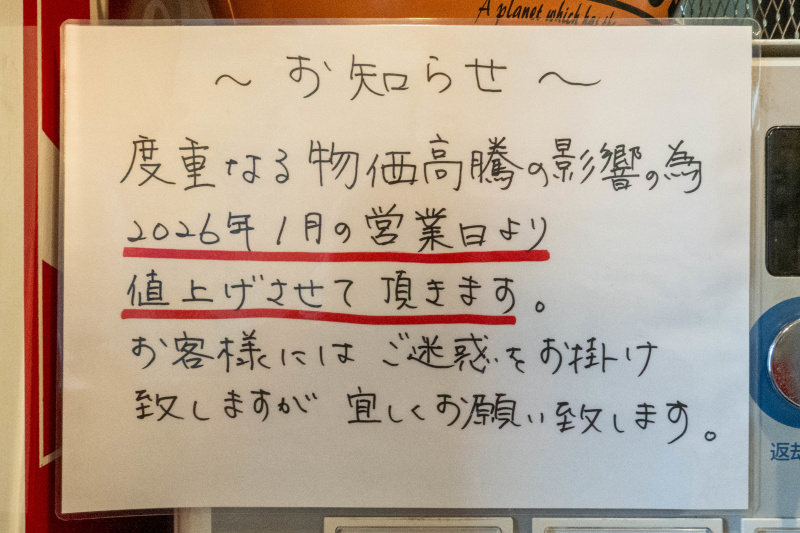 A planet which has the
～お知らせ～
度重なる物価高騰の影響の為
2026年1月の営業日より
値上げさせて頂きます。
お客様にはご迷惑をお掛け
致しますが 宜しくお願い致します。
返却